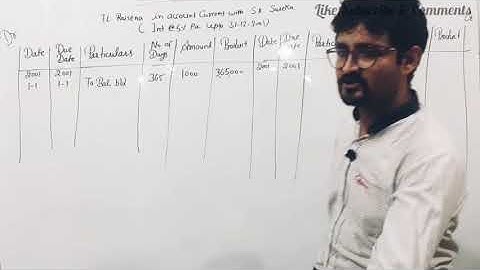 Like Subscribe & Comments
TL Raisena in account Current with S.K Surekha
Dr
( Int @ 6% Pa Upto 31-12-2001)
Cr
Date Due Date Particulars No of Days Amount Product Date Due Product
2001 2001 2001 2001
1-1 1-1 To Bal b/d 365 1000 365000